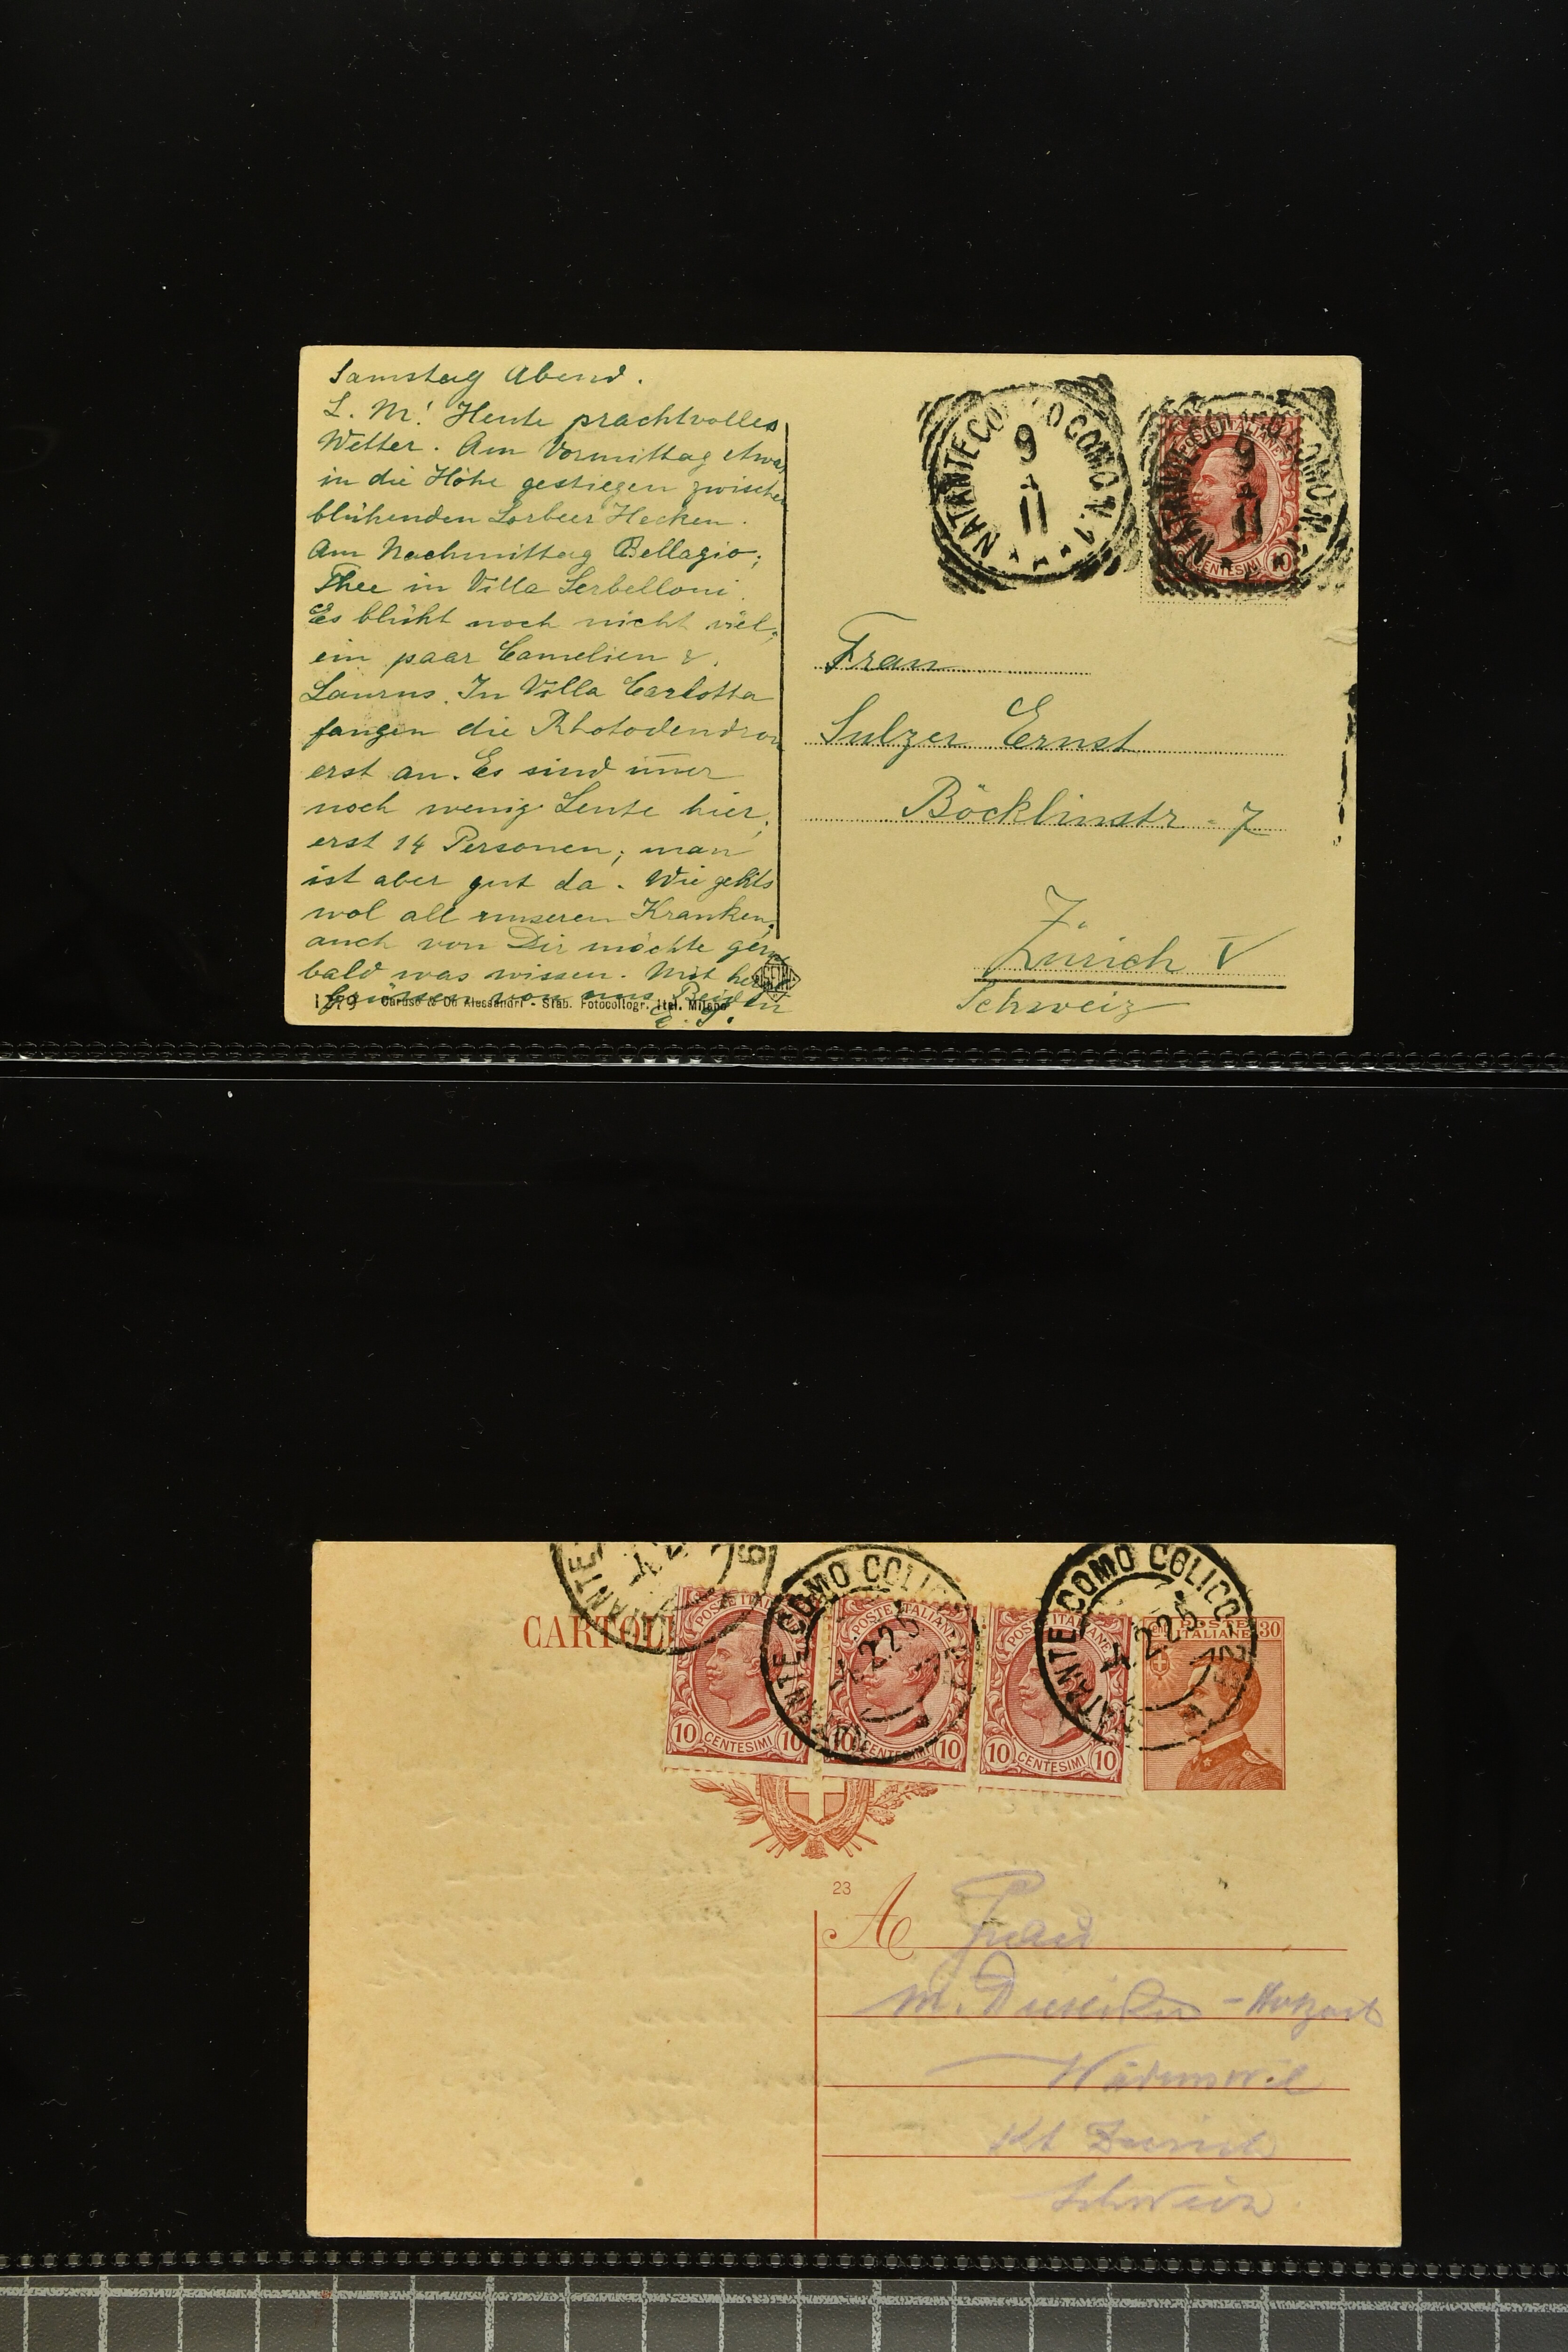 Samstag Abend.
L. M! Heute prachtvolles
Wetter. Am Vormittag etwas
in die Höhe gestiegen zwischen
blühenden Lorbeer Hecken.
Am Nachmittag Bellagio;
Thee in Villa Serbelloni.
Es blüht noch nicht viel,
ein paar Camelien &
Laurus. In Villa Carlotta
fangen die Rhotodendron
erst an. Es sind im̅er
noch wenig Leute hier,
erst 14 Personen; man
ist aber gut da. Wie gehts
wol all unseren Kranken,
auch von Dir möchte gern
bald was wissen. Mit herz
Grüssen von uns Beiden
E. S.
Stab. Fotocollogr. Ital. Milano
NATANTE CO O COMO N. 1
9
4
11
POSTE ITALIANE
CENTESIMI 10
9
4
11
Frau
Sulzer Ernst
Böcklinstr. 7
Zürich V
Schweiz
CARTOL
ANTE
POSTE ITALIANE
10 CENTESIMI 10
NTE COMO COLICO
2 25
POSTE ITALIANE
10 CENTESIMI 10
POSTE ITALIANE
10 CENTESIMI 10
NATANTE COMO COLICO
2 25
POSTE
ITALIANE 30
23
A Frau
M.
Wädenswil
Kt Zürich
Schweiz